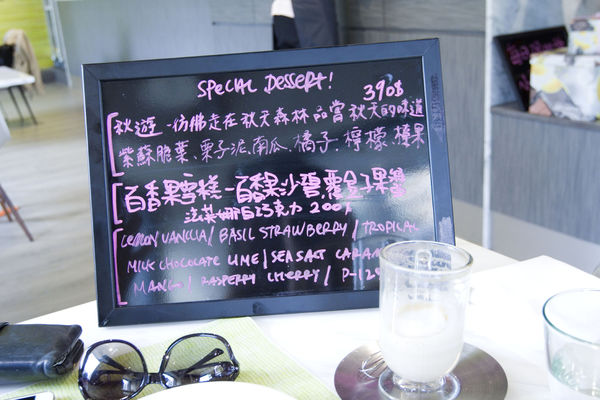 SPECIAL DESSERT!
390$
秋遊-彷彿走在秋天森林品嘗秋天的味道
紫蘇脆葉、栗子泥、南瓜、橘子、檸檬、榛果
百香果雪糕-百香果沙碧、覆盆子果醬
法芙娜白巧克力 200$
LEMON VANILLA / BASIL STRAWBERRY / TROPICAL
MILK CHOCOLATE LIME / SEA SALT CARAM
MANGO / RASPERRY CHERRY /